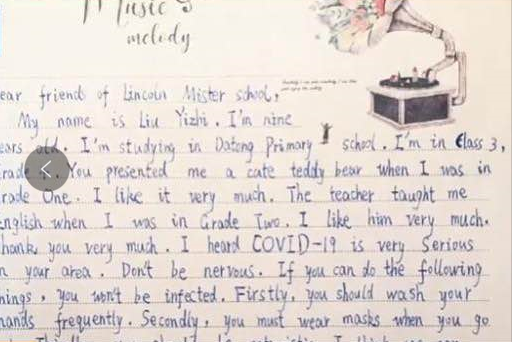 Music's
melody
ear friends of Lincoln Mister school,
My name is Liu Yizhi. I'm nine
ears old. I'm studying in Datong Primary school. I'm in Class 3,
rade You presented me a cute teddy bear when I was in
rade One. I like it very much. The teacher taught me
nglish when I was in Grade Two. I like him very much.
hank you very much. I heard COVID-19 is very Serious
n your area. Don't be nervous. If you can do the following
hings, you won't be infected. Firstly, you should wash your
hands frequently. Secondly, you must wear masks when you go